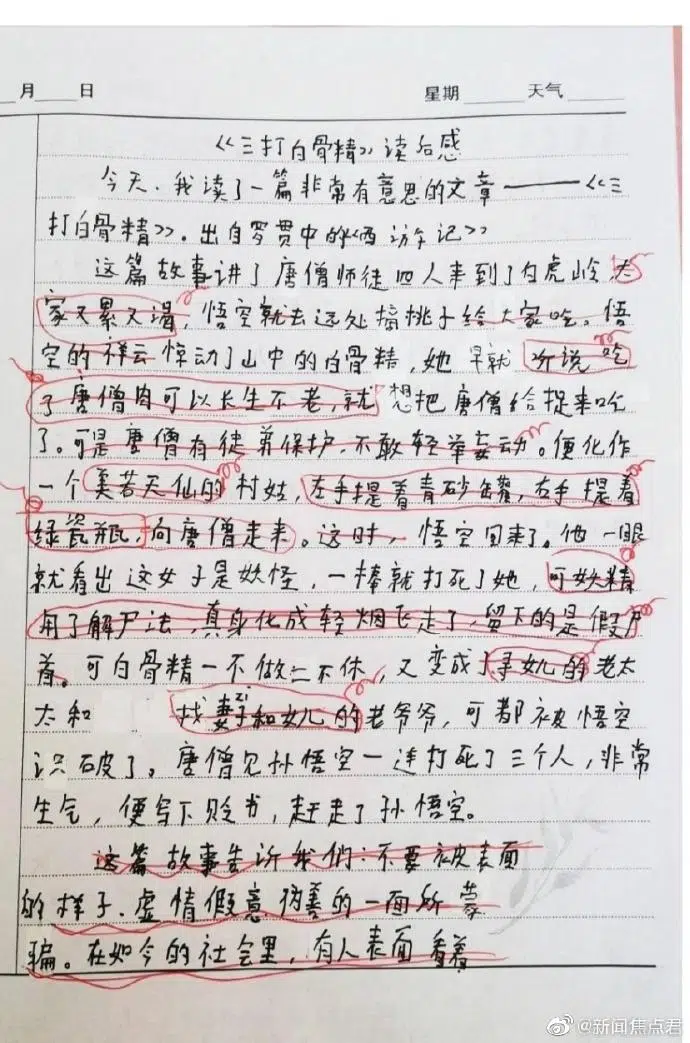 月 日 星期 天气
《三打白骨精》读后感
今天.我读了一篇非常有意思的文章——《三
打白骨精》.出自罗贯中的《西游记》
这篇故事讲了唐僧师徒四人来到了白虎岭,大
家又累又渴,悟空就去远处摘桃子给大家吃。悟
空的祥云惊动了山中的白骨精,她早就听说吃
了唐僧肉可以长生不老,就想把唐僧给捉来吃
了。可是唐僧有徒弟保护,不敢轻举妄动。便化作
一个美若天仙的村姑,左手提着青砂罐,右手提着
绿瓷瓶,向唐僧走来。这时,悟空回来了。他一眼
就看出这女子是妖怪,一棒就打死了她,可妖精
用了解尸法,真身化成轻烟飞走了,留下的是假尸
首。可白骨精一不做二不休,又变成了寻女儿的老太
太和 找妻子zi和女儿的老爷爷,可都被悟空
识破了。唐僧见孙悟空一连打死了三个人,非常
生气,便写下贬书,赶走了孙悟空。
这篇故事告诉我们:不要被表面
的样子.虚情假意伪善的一面所蒙
骗。在如今的社会里,有人表面看着
@新闻焦点君